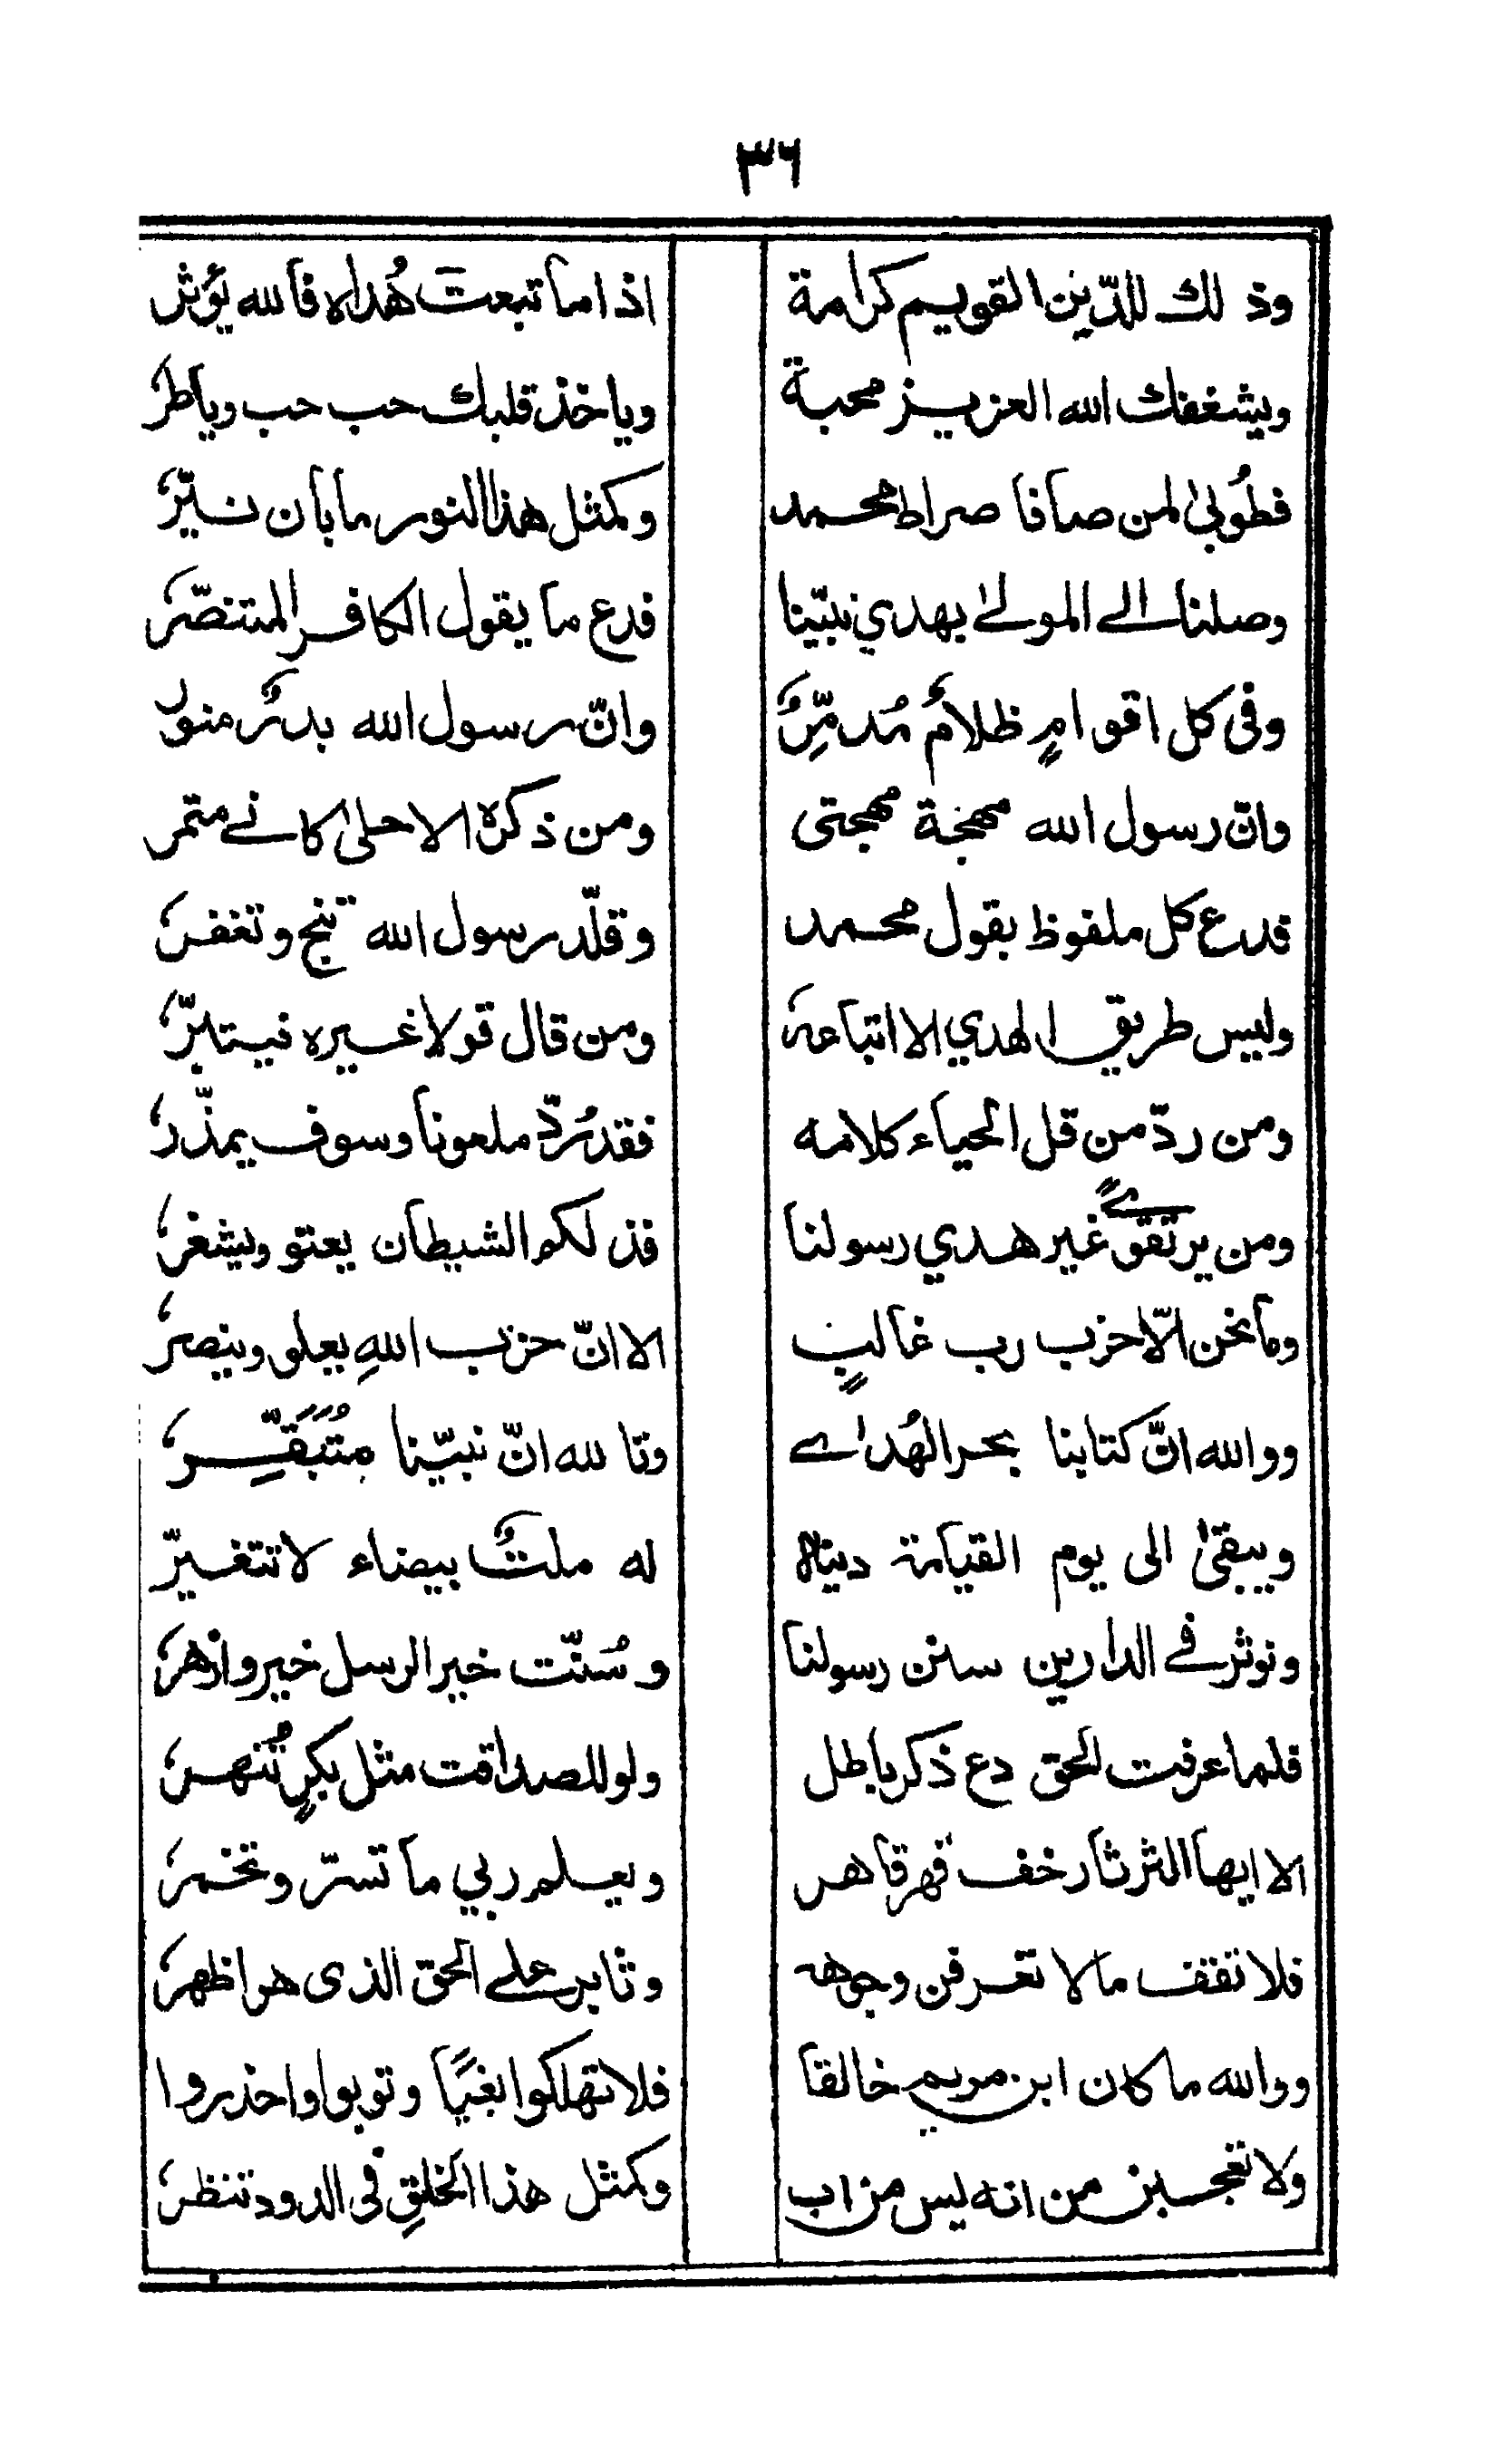 ٣٦
وذلك للدّين القويم كرامة اذا ما تبعت هُداه فالله يؤثر
ويشغفك الله العزيز محبة وياخذ قلبك حب حب وياطر
فطُوبىٰ لمن صافا صراط محمد وكمثل هذا النور ما بان نيّر
وصلنا الى المولىٰ بهدي نبيّنا فدع ما يقول الكافر المتنصّر
وفى كل اقوامٍ ظلامٌ مُدمِّرٌ وانّ رسول الله بدرٌ منور
وانّ رسول الله مهجة مهجتى ومن ذكره الاحلىٰ كانے متمر
فدع كل ملفوظ بقول محمد وقلّد رسول الله تنج وتغفر
وليس طريق الهدي الا اتباعه ومن قال قولا غيره فيتبّر
ومن ردّ من قل الحياء كلامه فقد رُدّ ملعونا وسوف يمذّر
ومن يرتقى غير هدي رسولنا فذلكم الشيطان يعتو ويشغر
وما نحن الّا حزب رب غالبٍ الا انّ حزب اللهِ يعلو وينصر
ووالله انّ كتابنا بحر الهُداے وتالله انّ نبيّنا مُتَبَقِّر
ويبقىٰ الى يوم القيامة دينه له ملتٌ بيضاء لا تتغيّر
ونوثر فے الدارين سنن رسولنا وسُنّت خير الرسل خير وازهر
فلما عرفت الحق دع ذكر باطل ولو للصداقت مثل بكرٍ تُنهر
الا ايها الثرثار خف قهر قاهر ويعلم ربي ما تسرّ وتخمر
فلا تقف ما لا تعرفن وجوهه وثابر علے الحق الذى هو اظهر
ووالله ما كان ابن مريم خالقا فلا تهلكوا بغيًا وتوبوا واحذروا
ولا تعجبن من انه ليس من اب وكمثل هذا الخلقِ فى الدود تنظر